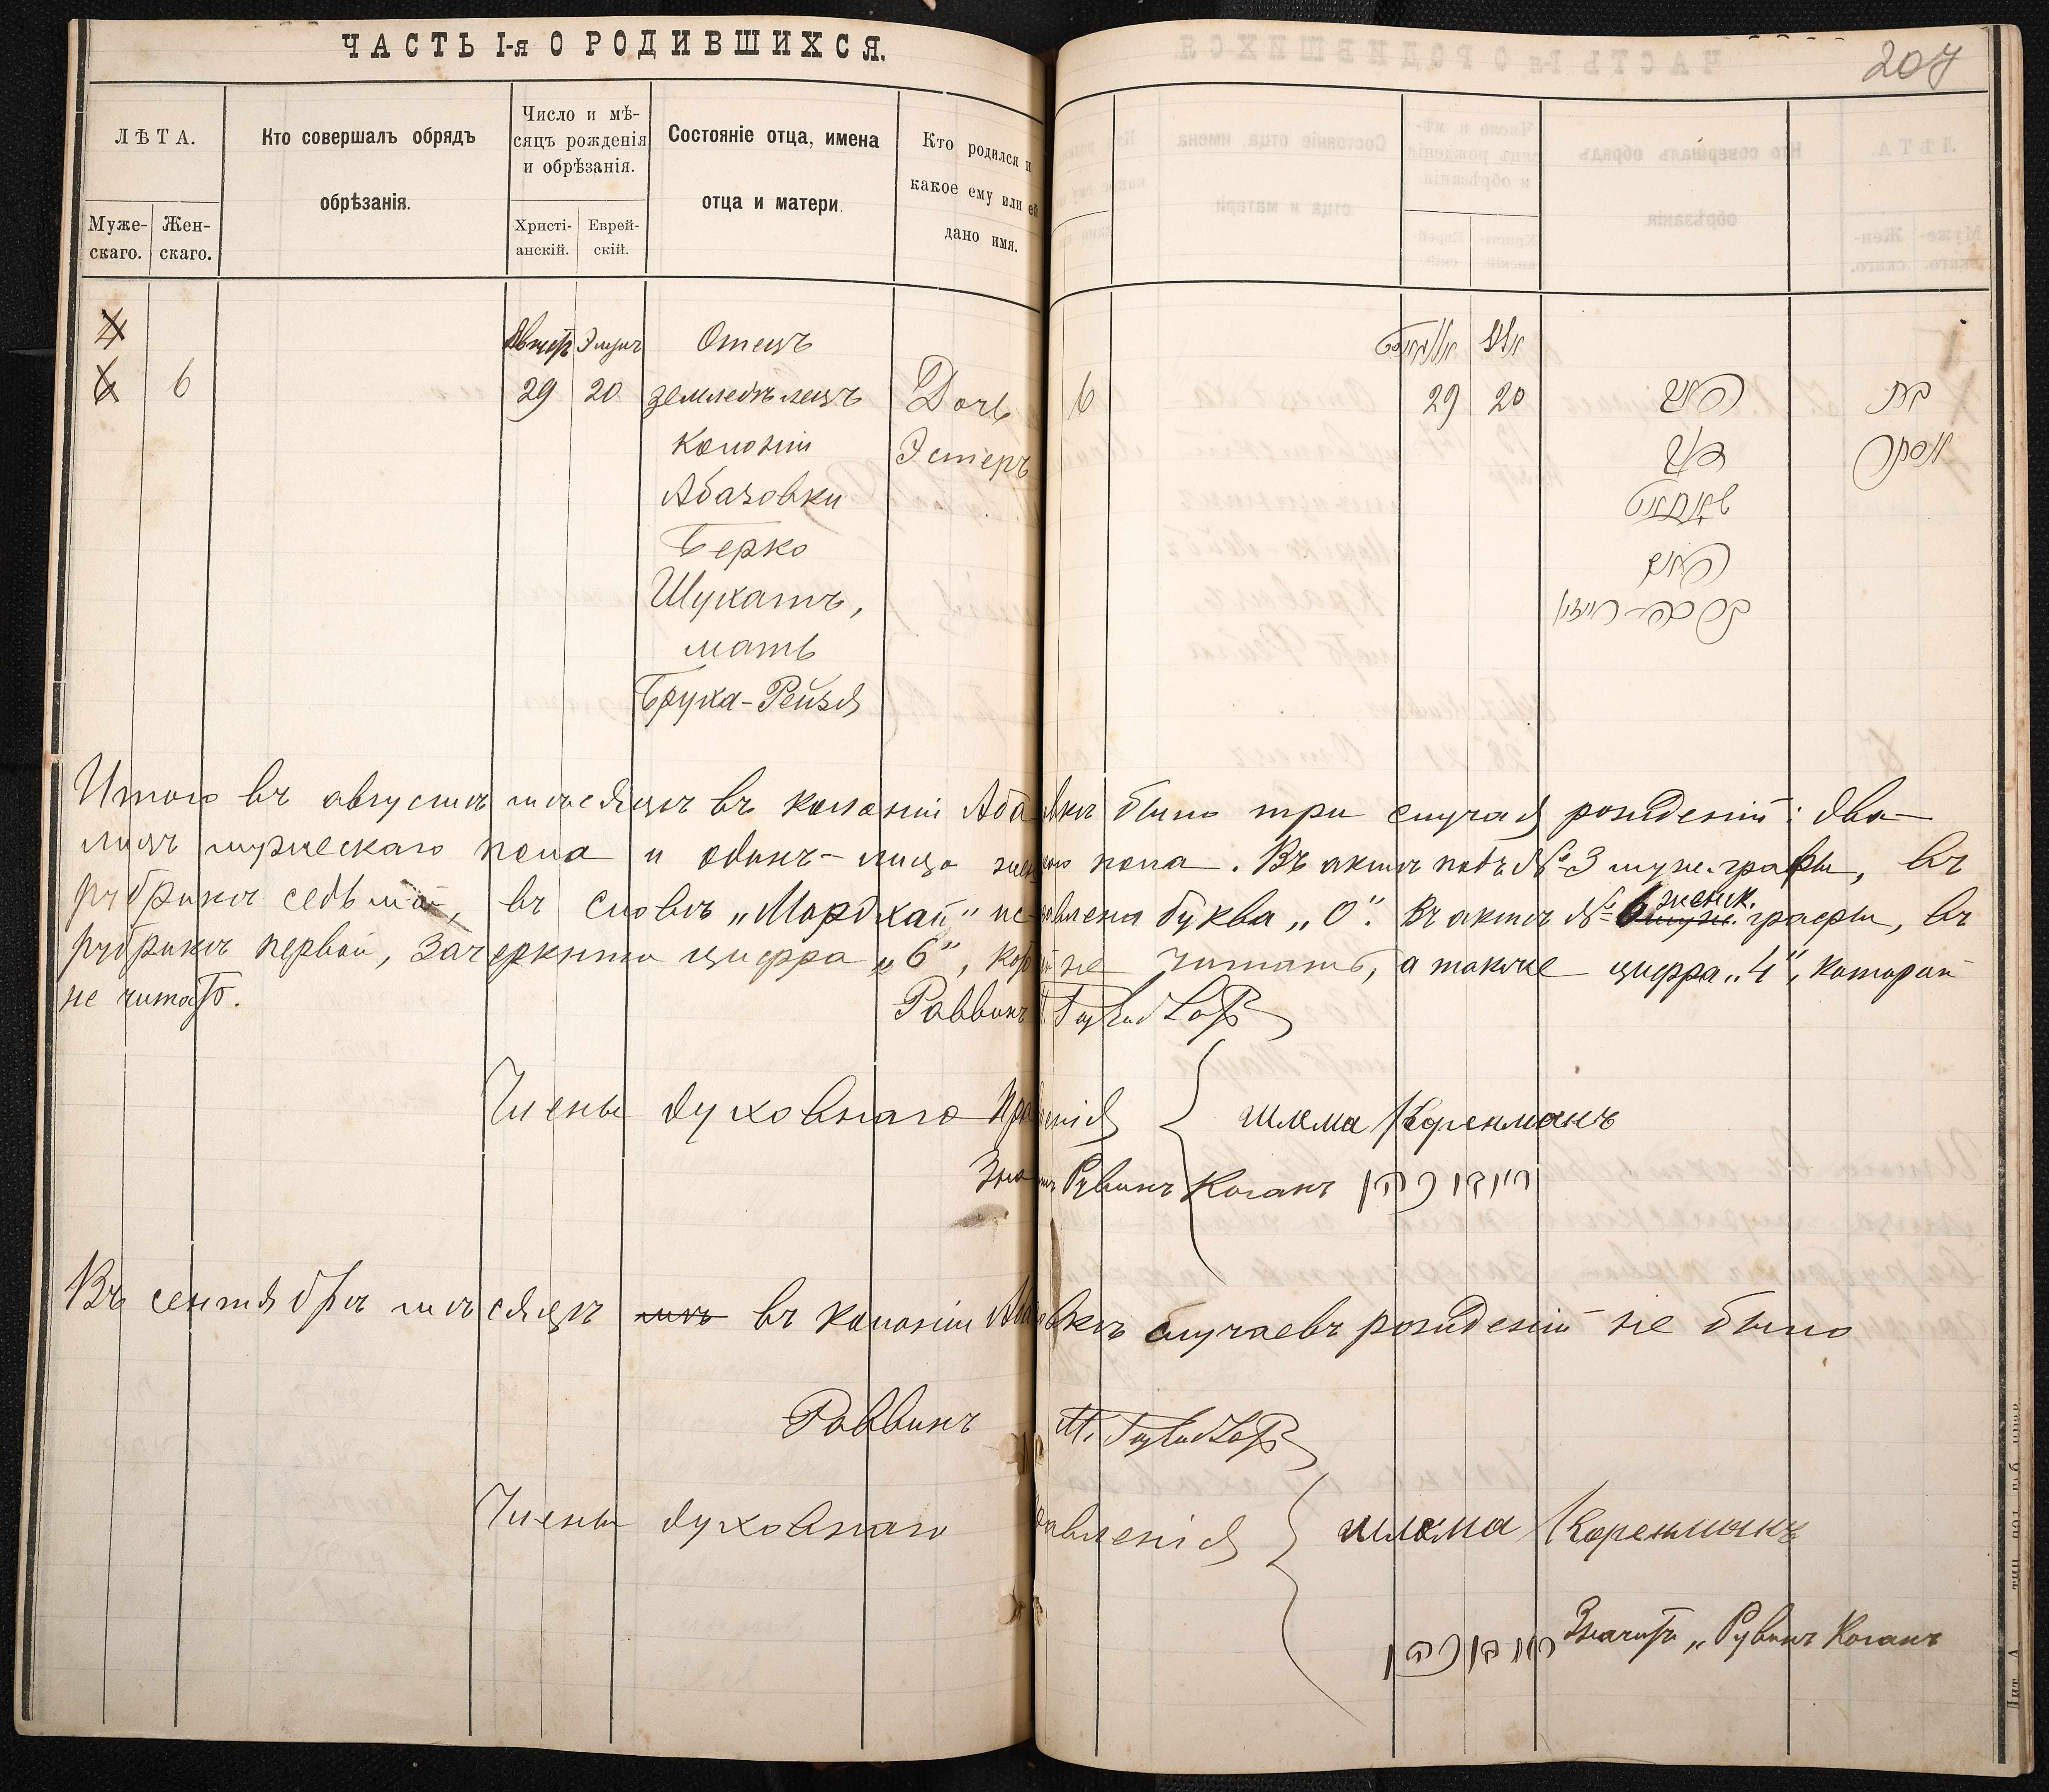 ЧАСТЬ I-я О РОДИВШИХСЯ.
207
ЛѢТА.
Муже-
скаго.
Жен-
скаго.
Кто совершалъ обрядъ
обрѣзанія.
Число и мѣ-
сяцъ рожденія
и обрѣзанія.
Христі-
анскій.
Еврей-
скій.
Состояніе отца, имена
отца и матери.
Кто родился и
какое ему или ей
дано имя.
4
6 6
Август Элулъ
29 20
Отецъ
земледѣлецъ
колоніи
Абазовки
Берко
Шухатъ,
мать
Бруха-Рейзя
Дочь
Эстеръ
6
אויגוסט אלול
29 20
בת
אסתר
Итого въ августѣ мѣсяцѣ въ колоніи Аба вкѣ было три случая рожденій: два-
лицъ мужескаго пола и одинъ-лица жен каго пола. Въ актѣ подъ № 3 муж. графы, въ
рубрикѣ седьмой, въ словѣ „Мордхай" ис авлена буква „О". Въ актѣ № 6 женск. муж. графы, въ
рубрикѣ первой, зачеркнута цифра „6", кот й не читать, а также цифра „4", которой
не читать.
Раввинъ
Члены духовнаго Пра енія
шлема Коренманъ
Рувинъ Коганъ ראובן כהן
Въ сентябрѣ мѣсяцѣ мѣ въ колоніи Аба вкѣ случаевъ рожденій не было
Раввинъ М.
Члены духовнаго равленія
шлема Коренманъ
ראובן כהן Значитъ „Рувинъ Коганъ